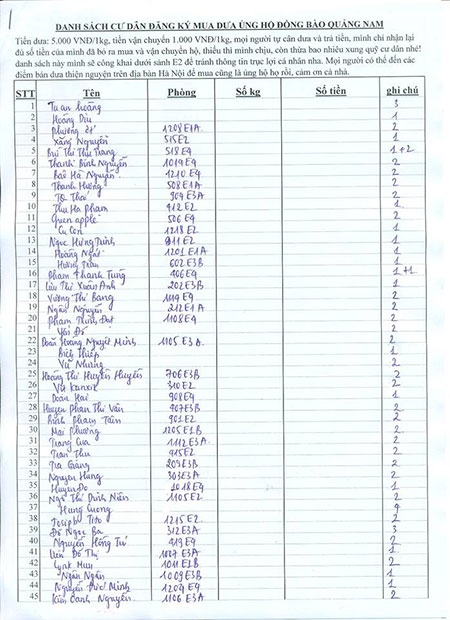 DANH SÁCH CƯ DÂN ĐĂNG KÝ MUA DƯA ỦNG HỘ ĐỒNG BÀO QUẢNG NAM
Tiền dưa: 5.000 VNĐ/1kg, tiền vận chuyển 1.000 VNĐ/1kg, mọi người tự cân dưa và trả tiền, mình chỉ nhận lại
đủ số tiền của mình đã bỏ ra mua và vận chuyển hộ, thiếu thì mình chịu, còn thừa bao nhiêu xung quỹ cư dân nhé!
danh sách này mình sẽ công khai dưới sảnh E2 để tránh thông tin trục lợi cá nhân nha. Mọi người có thể đến các
điểm bán dưa thiện nguyện trên địa bàn Hà Nội để mua cũng là ủng hộ họ rồi, cám ơn cả nhà.
STT Tên Phòng Số kg Số tiền ghi chú
1 Tuan hoàng 3
2 Hoàng Dịu 1
3 phương 1208E1A 2
4 Xăng Nguyễn 515E2 1
5 Bùi Thị Thu Trang 518E4 1+2
6 Thanh Bình Nguyễn 1019E4 2
7 Bao Hà Nguyễn 1210E4 2
8 Thanh Hương 508E1A 2
9 904E3A 2
10 Thu Ha pham 912E2 1
11 Green apple 506E4 2
12 Cu Con 1218E2 1
13 Ngọc Hưng Trịnh 911E2 1
14 Hoàng Ngát 1201E1A 1
15 Hương Trần 602E3B 1
16 Phạm Thanh Tùng 406E4 1+1
17 Lưu Thị Xuân Anh 202E3B 1
18 Vương Thị Bang 1119E4 2
19 Ngân Nguyễn 212E1A 2
20 Phạm Thinh Dat 1108E4 2
21
22 Doãn Hoàng Nguyệt Minh 1105E3A 2
23 Bích Thiệp 1
24 Vũ Nhung 2
25 Hoàng Thị Huyền Huyền 706E3B 2
26 310E2 2
27 Doan Hai 908E4 1
28 Huyen Phan Thi Vân 907E3B 2
29 Binh Pham Tâm 901E2 2
30 Mai Phương 1205E1B 2
31 Trang Cua 1112E3A 2
32 Tran Thu 915E2 2
33 Tra Giang 209E3B 2
34 Nguyen Hung 303E3A 2
35 Huyen Do 1018E4 1
36 Ngô Thị Đình Nân 1105E2 2
37 Hung Cuong
38 Joseph Tito 1215E2 2
39 Đỗ Ngọc Ba 312E3A 3
40 Nguyễn Hồng Tú 419E4 2
41 Liên Đỗ Thị 1027E3A 1
42 Lynk Mun 1011E1B 2
43 Ngân Ngân 1009E3B 1
44 Nguyễn Đức Minh 1209E4 2
45 Kim Oanh Nguyễn 1106E3A 2